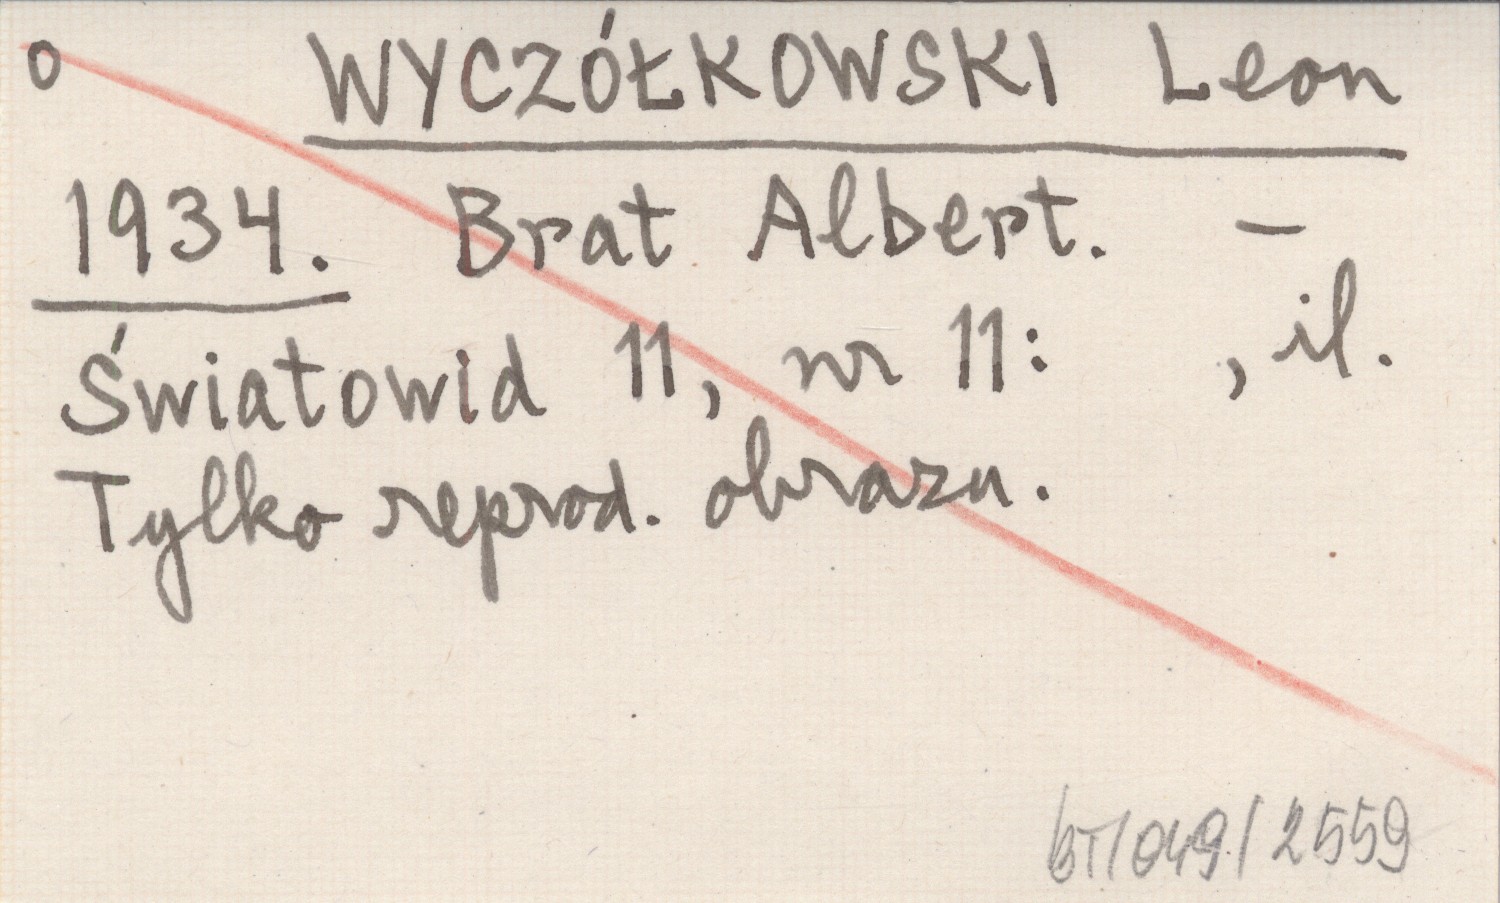 o WYCZÓŁKOWSKI Leon
1934. Brat Albert. –
Światowid 11, nr 11: , il.
Tylko reprod. obrazu.
bT/049/2559